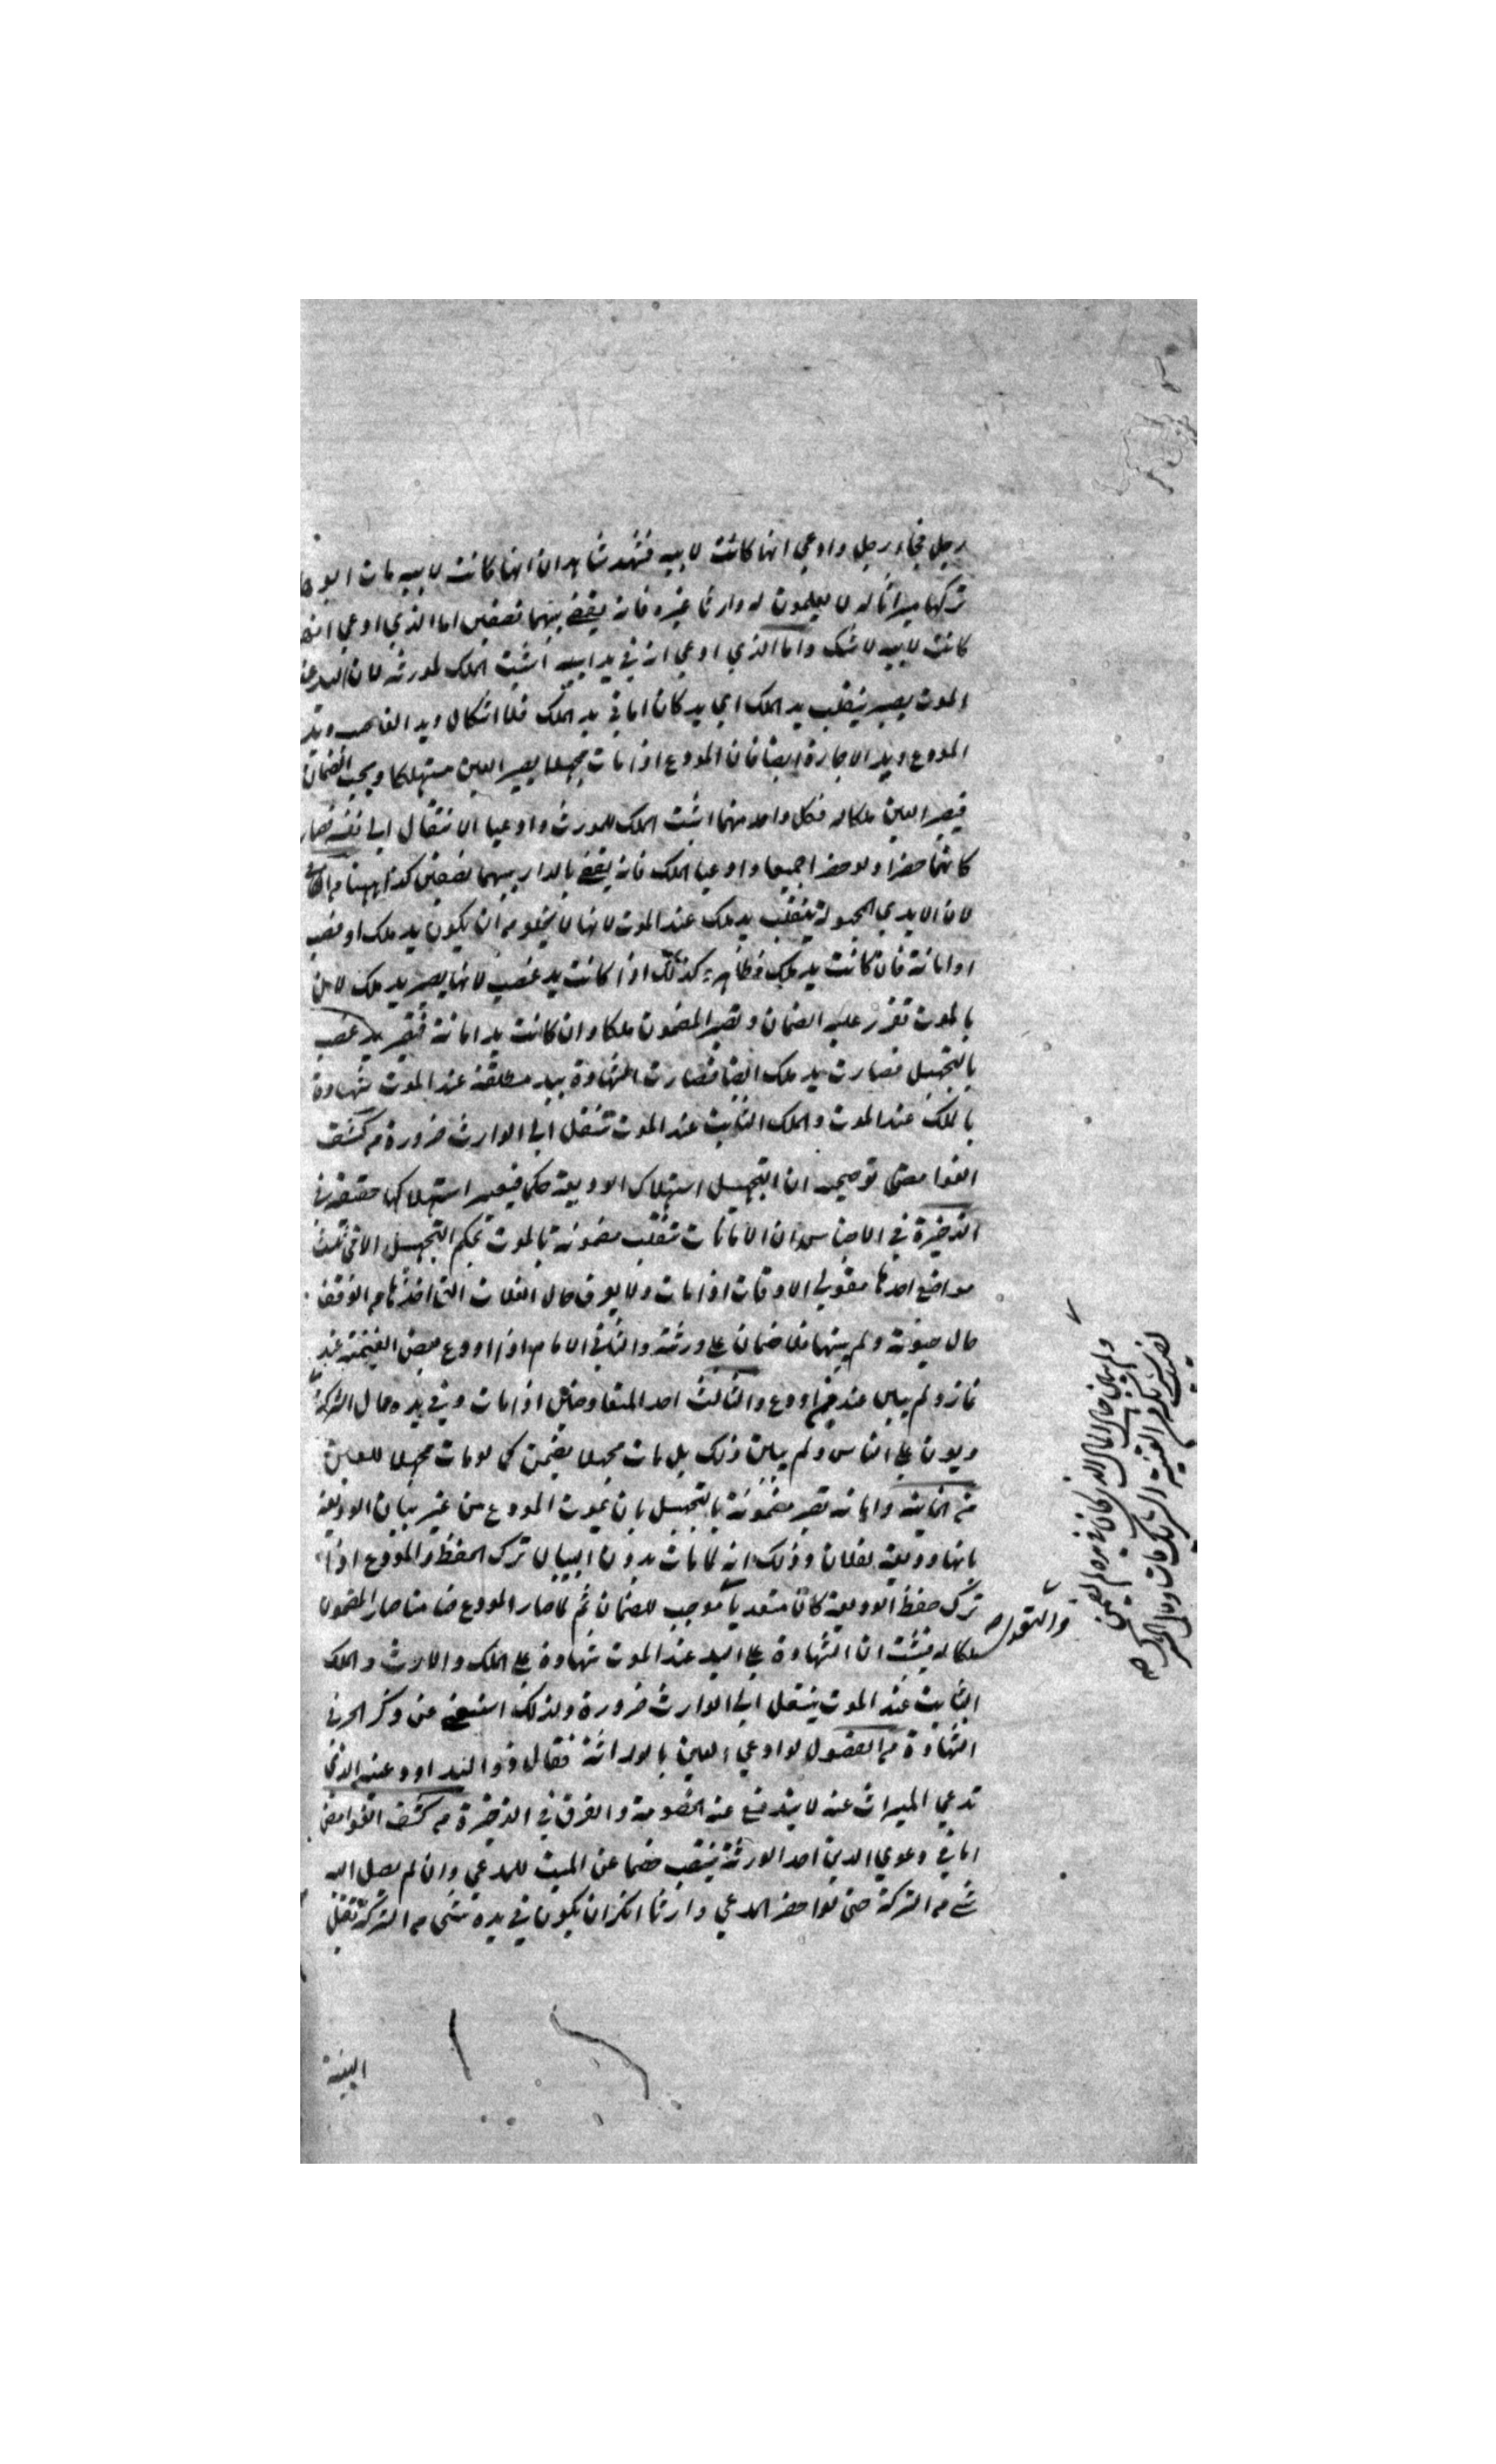 رجل فجاء رجل وادعي انها كانت لابيه فشهد شاهدان انها كانت لابيه مات ابوه
تركها ميراثا له لا يعلمون له وارثا غيره فانه يقضي بينهما نصفين اما الذي ادعي انها
كانت لابيه لا شك واما الذي ادعي انه في يد ابيه اثبت الملك لمورثه لان اليد عند
الموت يصير ينقلب يد الملك اي يد كان اما في يد الملك فلا اشكال ويد الغاصب ويد
المودع ويد الاجارة ايضا فان المودع اذا مات مجهلا يصير العين مستهلكا ويجب الضمان
فيصير العين ملكا له فكل واحد منهما اثبت الملك للمورث وادعيا الانتقال الي نفسه فصار
كانهما حضرا ولو حضرا جميعا وادعيا الملك فانه يقضي بالدار بينهما نصفين كذا ههنا من
لان الايدي المجهولة ينقلب يد ملك عند الموت لانها لا يخلو من ان يكون يد ملك او غصب
او امانة فان كانت يد ملك فظاهر وكذلك اذا كانت يد غصب لانها يصير يد ملك لان
بالموت تقرر عليه الضمان وتصير المضمون ملكا وان كانت يد امانة فتصير يد غصب
بالتجهيل فصارت يد ملك ايضا فصارت الشهادة بيد مطلقة عند الموت شهادة
بالملك عند الموت والملك الثابت عند الموت تنتقل الي الوارث ضرورة من كشف
الغوامض توضيحه ان التجهيل استهلاك الوديعة حكما فيعتبر استهلاكها حقيقة في
الذخيرة في الاجناس ان الامانات تنقلب مضمونة بالموت بحكم التجهيل الا في ثلث
مواضع احدها متولي الاوقات اذا مات ولا يعرف حال الغلات التي اخذها من الوقف
حال حيوته ولم يبينها فلا ضمان علي ورثته والثاني الامام اذا اودع بعض الغنيمة عند
غاز ولم يبين عند من اودع والثالث احد المتفاوضين اذا مات وفي يده مال الشركة
وديون علي الناس ولم يبين ذلك بل مات مجهلا يضمن كما لو مات مجهلا للعين
من الخانية وامانة تصير مضمونة بالتجهيل بان يموت المودع من غير بيان الوديعة
بانها وديعة لفلان وذلك انه لما مات بدون البيان ترك الحفظ والمودع اذا
ترك حفظ الوديعة كان متعديا موجب للضمان ثم لما صار المودع ضامنا صار المضمون
ملكا له فيثبت ان الشهادة علي اليد عند الموت شهادة علي الملك والارث والملك
الثابت عند الموت ينتقل الي الوارث ضرورة ولذلك استغني عن ذكر الجر في
الشهادة من الفصول لو ادعي العين بالوراثة فقال ذو اليد اودعنيه الذي
تدعي الميراث عنه لا يندفع عنه الخصومة والفرق في الذخيرة من كشف الغوامض
اما في دعوي الدين احد الورثة ينتصب خصما عن الميت للمدعي وان لم يصل اليه
شي من التركة حتي لو احضر المدعي وارثا انكر ان يكون في يده شي من التركة تقبل
البينة